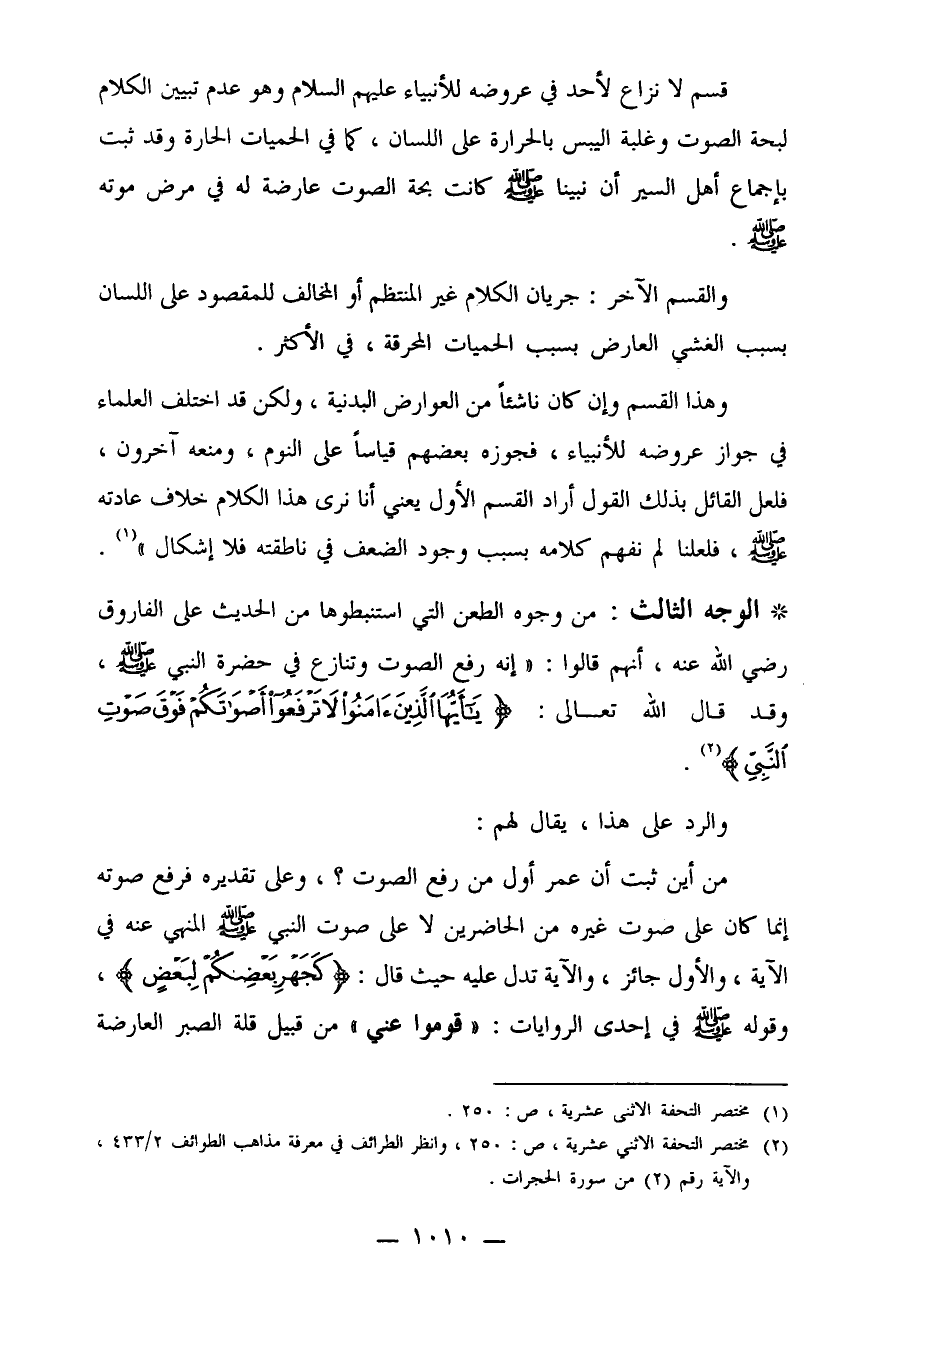 قسم لا نزاع لأحد في عروضه للأنبياء عليهم السلام وهو عدم تبيين الكلام
لبحة الصوت وغلبة اليبس بالحرارة على اللسان ، كما في الحميات الحارة وقد ثبت
بإجماع أهل السير أن نبينا ﷺ كانت بحة الصوت عارضة له في مرض موته
ﷺ .
والقسم الآخر : جريان الكلام غير المنتظم أو المخالف للمقصود على اللسان
بسبب الغشي العارض بسبب الحميات المحرقة ، في الأكثر .
وهذا القسم وإن كان ناشئاً من العوارض البدنية ، ولكن قد اختلف العلماء
في جواز عروضه للأنبياء ، فجوزه بعضهم قياساً على النوم ، ومنعه آخرون ،
فلعل القائل بذلك القول أراد القسم الأول يعني أنا نرى هذا الكلام خلاف عادته
ﷺ ، فلعلنا لم نفهم كلامه بسبب وجود الضعف في ناطقته فلا إشكال »(١) .
* الوجه الثالث : من وجوه الطعن التي استنبطوها من الحديث على الفاروق
رضي الله عنه ، أنهم قالوا : « إنه رفع الصوت وتنازع في حضرة النبي ﷺ ،
وقد قال الله تعالى : ﴿ يَٰٓأَيُّهَا ٱلَّذِينَ ءَامَنُوا۟ لَا تَرْفَعُوٓا۟ أَصْوَٰتَكُمْ فَوْقَ صَوْتِ
ٱلنَّبِيِّ ﴾(٢) .
والرد على هذا ، يقال لهم :
من أين ثبت أن عمر أول من رفع الصوت ؟ ، وعلى تقديره فرفع صوته
إنما كان على صوت غيره من الحاضرين لا على صوت النبي ﷺ المنهي عنه في
الآية ، والأول جائز ، والآية تدل عليه حيث قال : ﴿ كَجَهْرِ بَعْضِكُمْ لِبَعْضٍ ﴾ ،
وقوله ﷺ في إحدى الروايات : « قوموا عني » من قبيل قلة الصبر العارضة
(١) مختصر التحفة الاثنى عشرية ، ص : ٢٥٠ .
(٢) مختصر التحفة الاثني عشرية ، ص : ٢٥٠ ، وانظر الطرائف في معرفة مذاهب الطوائف ٤٣٣/٢ ،
والآية رقم (٢) من سورة الحجرات .
— ١٠١٠ —